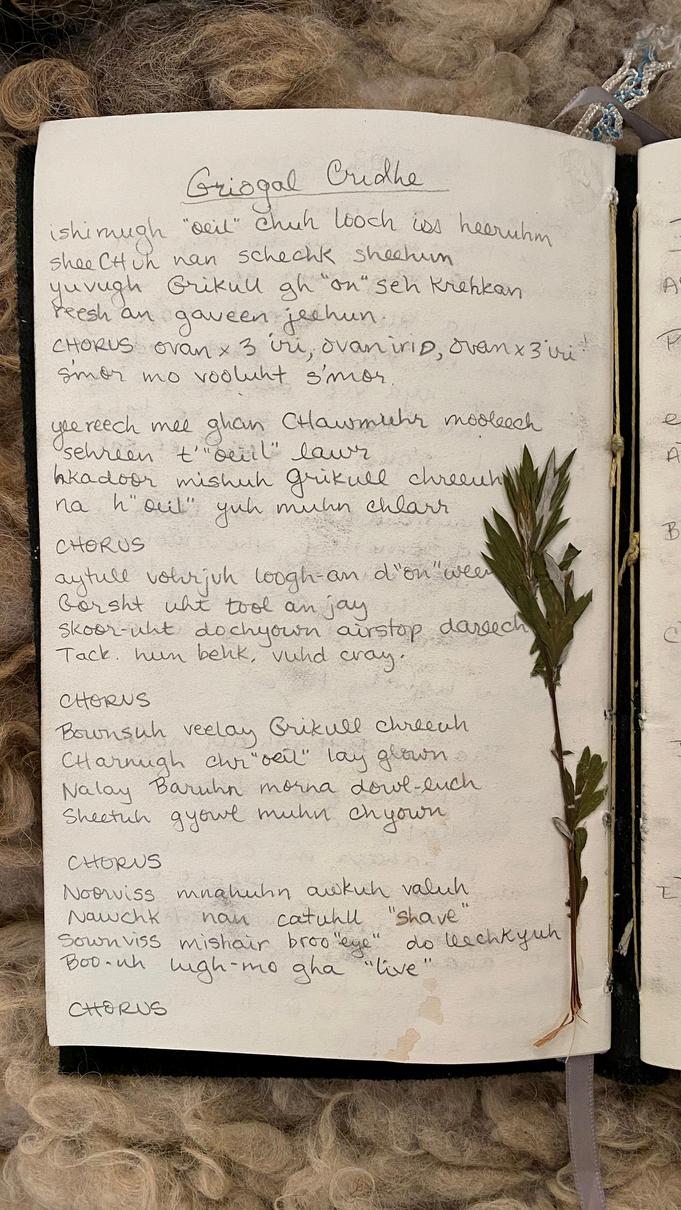 Griogal Cridhe
ishimugh "oeil" chuh looch iss heeruhm
sheeCHuh nan schechk sheehum
yuvugh Grikull gh"on"seh krehkan
reesh an gaveen jeehun.
CHORUS ovan x 3 iri, ovaniriD, ovan x 3 iri!
s'mor mo vooluht s'mor.
yeereech mee ghan CHawmuhr mooleech
sehreen t'"oeiil" lawr
hkadoor mishuh Grikull chreeuh
na h"oeil" yuh muhn chlarr
CHORUS
aytull vohrjuh loogh-an d"on"ween
Gorsht uht tool an jay
skoor-uht dochyown airstop dareech
Tack. hun behk. vuhd cray.
CHORUS
Bownsuh veelay Grikull chreeuh
CHarnugh chr"oeil" lay glown
Nalay Baruhn morna dowl-euch
Sheetuh gyowl muhn chyown
CHORUS
Noorviss mnahuhn awkuh valuh
Nawchk nan catuhll "shave"
Sownviss mishair broo"eye" do leechkyuh
Boo-uh lugh-mo gha "live"
CHORUS
A
P
e
A
B
C